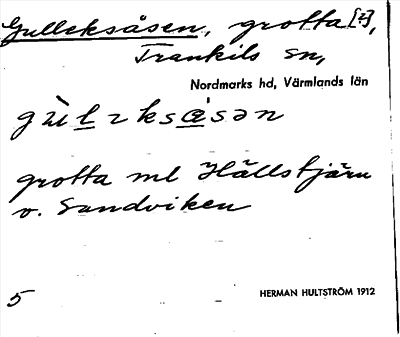 Gulleksåsen, grotta [z],
Trankils sn,
Nordmarks hd, Värmlands län
grotta ml Hällstjärn
o. Sandviken
5
HERMAN HULTSTRÖM 1912